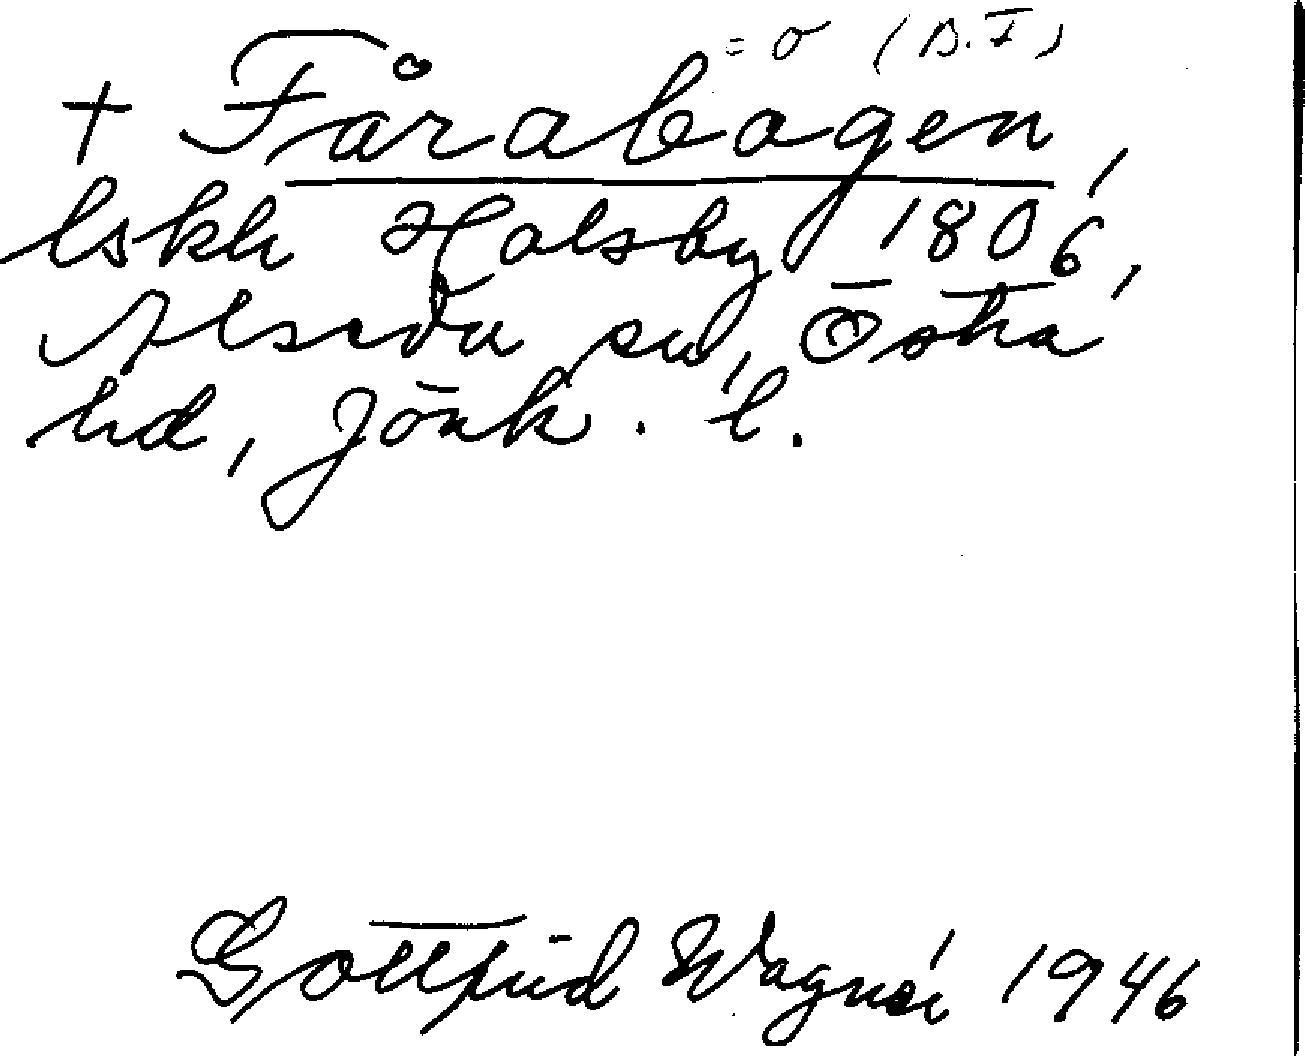 = σ (D.I)
+ Fårabogen,
lskh Holsby 1806,
Alseda sn, Östra
hd, Jönk. l.
Gottfrid Wagnér 1946